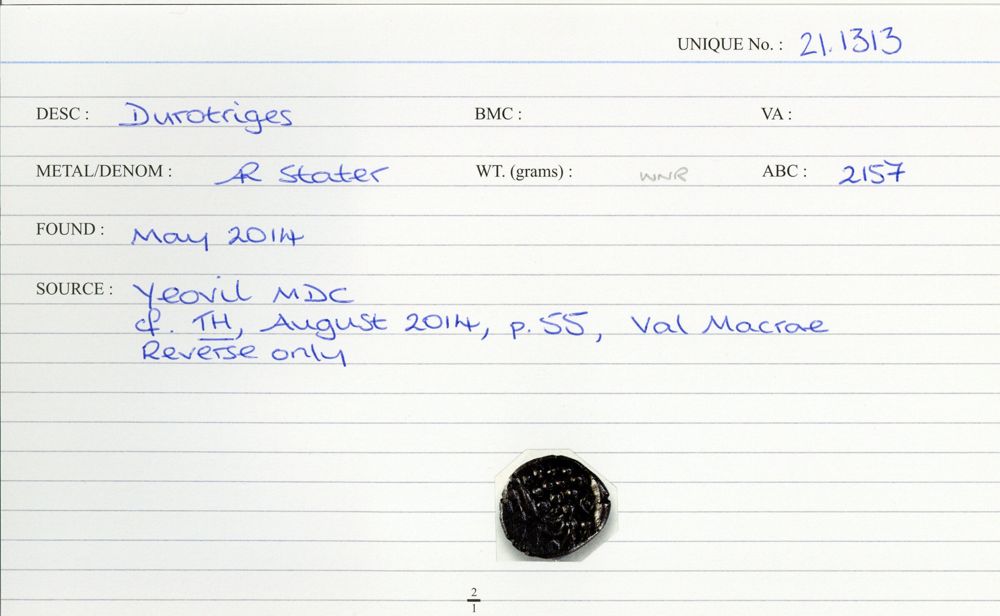 UNIQUE No. : 21.1313
DESC : Durotriges BMC : VA :
METAL/DENOM : AR Stater WT. (grams) : WNR ABC : 2157
FOUND : May 2014
SOURCE : Yeovil MDC
cf. TH, August 2014, p. 55, Val Macrae
Reverse only
2
1